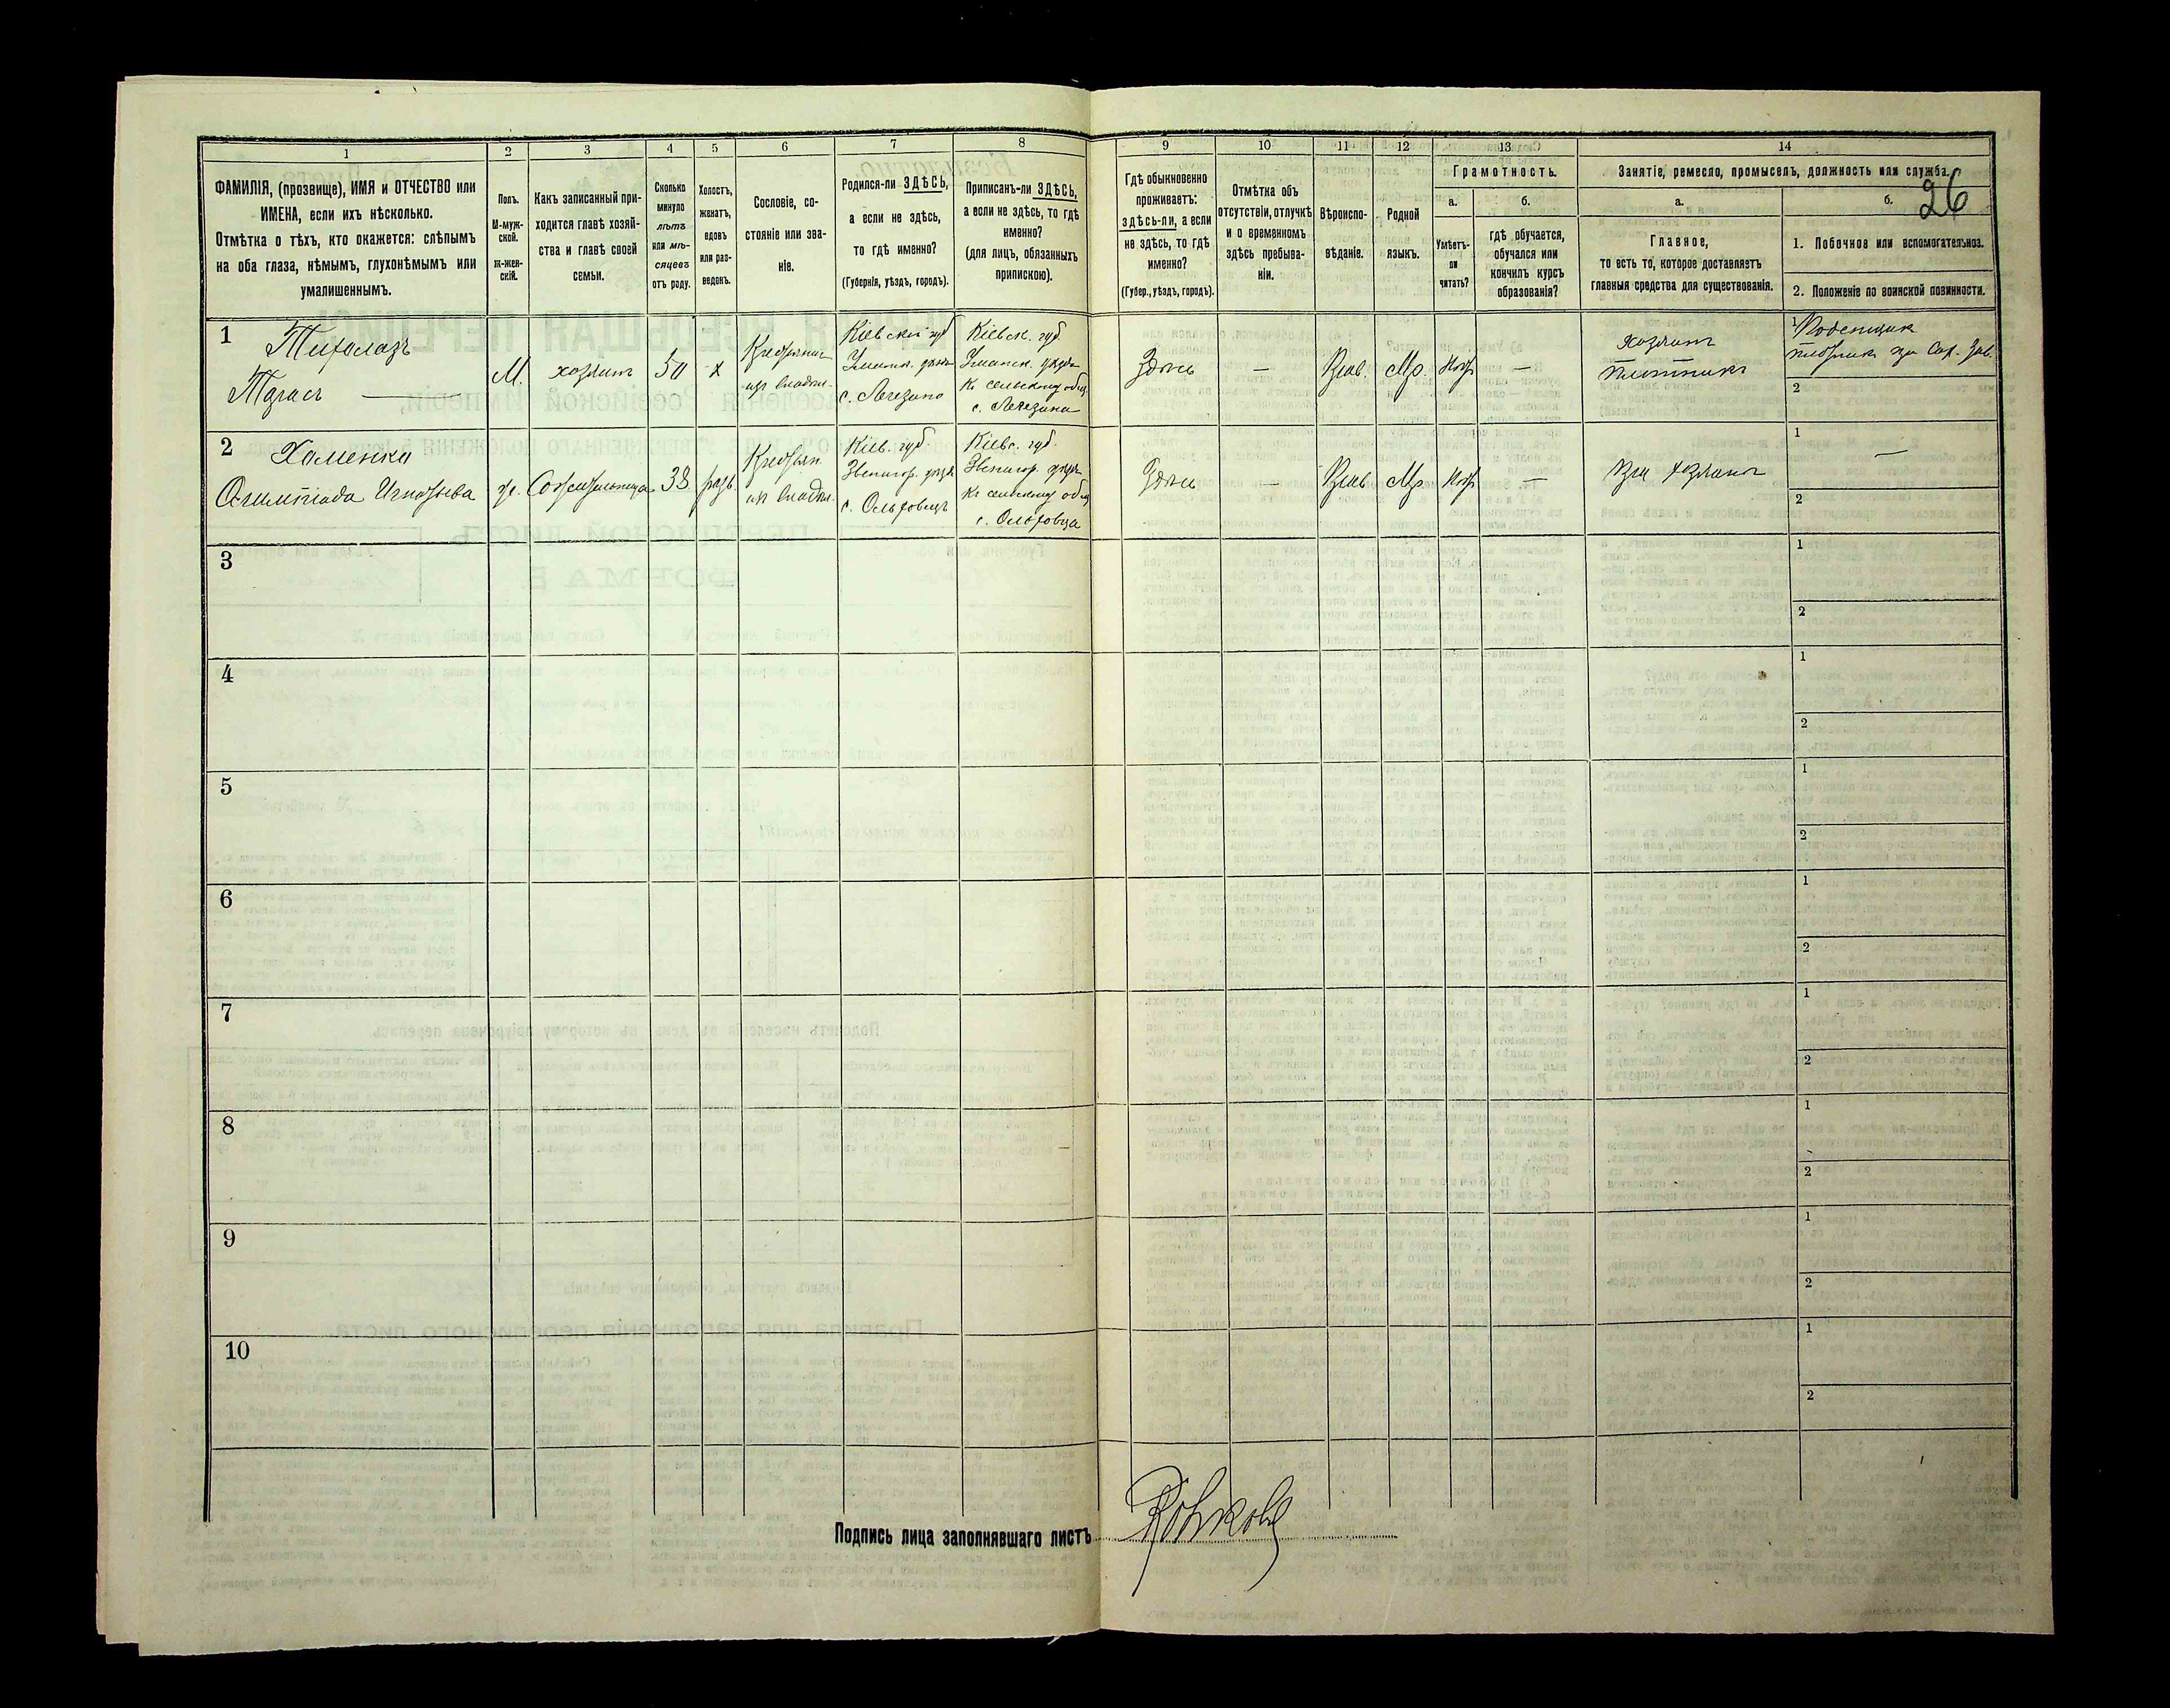 26
1
2
3
4
5
6
7
8
9
10
11
12
13
14
ФАМИЛІЯ, (прозвище), ИМЯ и ОТЧЕСТВО или
ИМЕНА, если ихъ нѣсколько.
Отмѣтка о тѣхъ, кто окажется: слѣпымъ
на оба глаза, нѣмымъ, глухонѣмымъ или
умалишеннымъ.
Полъ.
М-муж-
ской.
Ж-жен-
скій.
Какъ записанный при-
ходится главѣ хозяй-
ства и главѣ своей
семьи.
Сколько
минуло
лѣтъ
или мѣ-
сяцевъ
отъ роду.
Холостъ,
женатъ,
вдовъ
или раз-
веденъ.
Сословіе, со-
стояніе или зва-
ніе.
Родился-ли ЗДѢСЬ,
а если не здѣсь,
то гдѣ именно?
(Губернія, уѣздъ, городъ).
Приписанъ-ли ЗДѢСЬ,
а если не здѣсь, то гдѣ
именно?
(для лицъ, обязанныхъ
припискою).
Гдѣ обыкновенно
проживаетъ:
здѣсь-ли, а если
не здѣсь, то гдѣ
именно?
(Губер., уѣздъ, городъ).
Отмѣтка объ
отсутствіи, отлучкѣ
и о временномъ
здѣсь пребыва-
ніи.
Вѣроиспо-
вѣданіе.
Родной
языкъ.
Грамотность.
а.
Умѣетъ-
ли
читать?
б.
гдѣ обучается,
обучался или
кончилъ курсъ
образованія?
Занятіе, ремесло, промыселъ, должность или служба.
а.
Главное,
то есть то, которое доставляетъ
главныя средства для существованія.
б.
1. Побочное или вспомогательное.
2. Положеніе по воинской повинности.
1
Тарасъ —
М.
хозяинъ
50
х
Кіевской губ
Уманск. уѣзда
с. Легезино
Кіевск. губ.
Уманск. уѣзда
къ сельскому общ.
с. Легезина
Здѣсь
—
Мр.
—
хозяинъ
плотникъ
1
2
2
Хоменко
Олимпіада Игнатьева
ж.
Сожительница
38
Кіев. губ.
Звенигор. уѣзда
с. Ольховецъ
Кіевс. губ.
Звенигор. уѣзда
къ сельскому общ
с. Ольховца
Здѣсь
—
Мр.
—
При хозяинѣ
1
—
2
3
1
2
4
1
2
5
1
2
6
1
2
7
1
2
8
1
2
9
1
2
10
1
2
Подпись лица заполнявшаго листъ